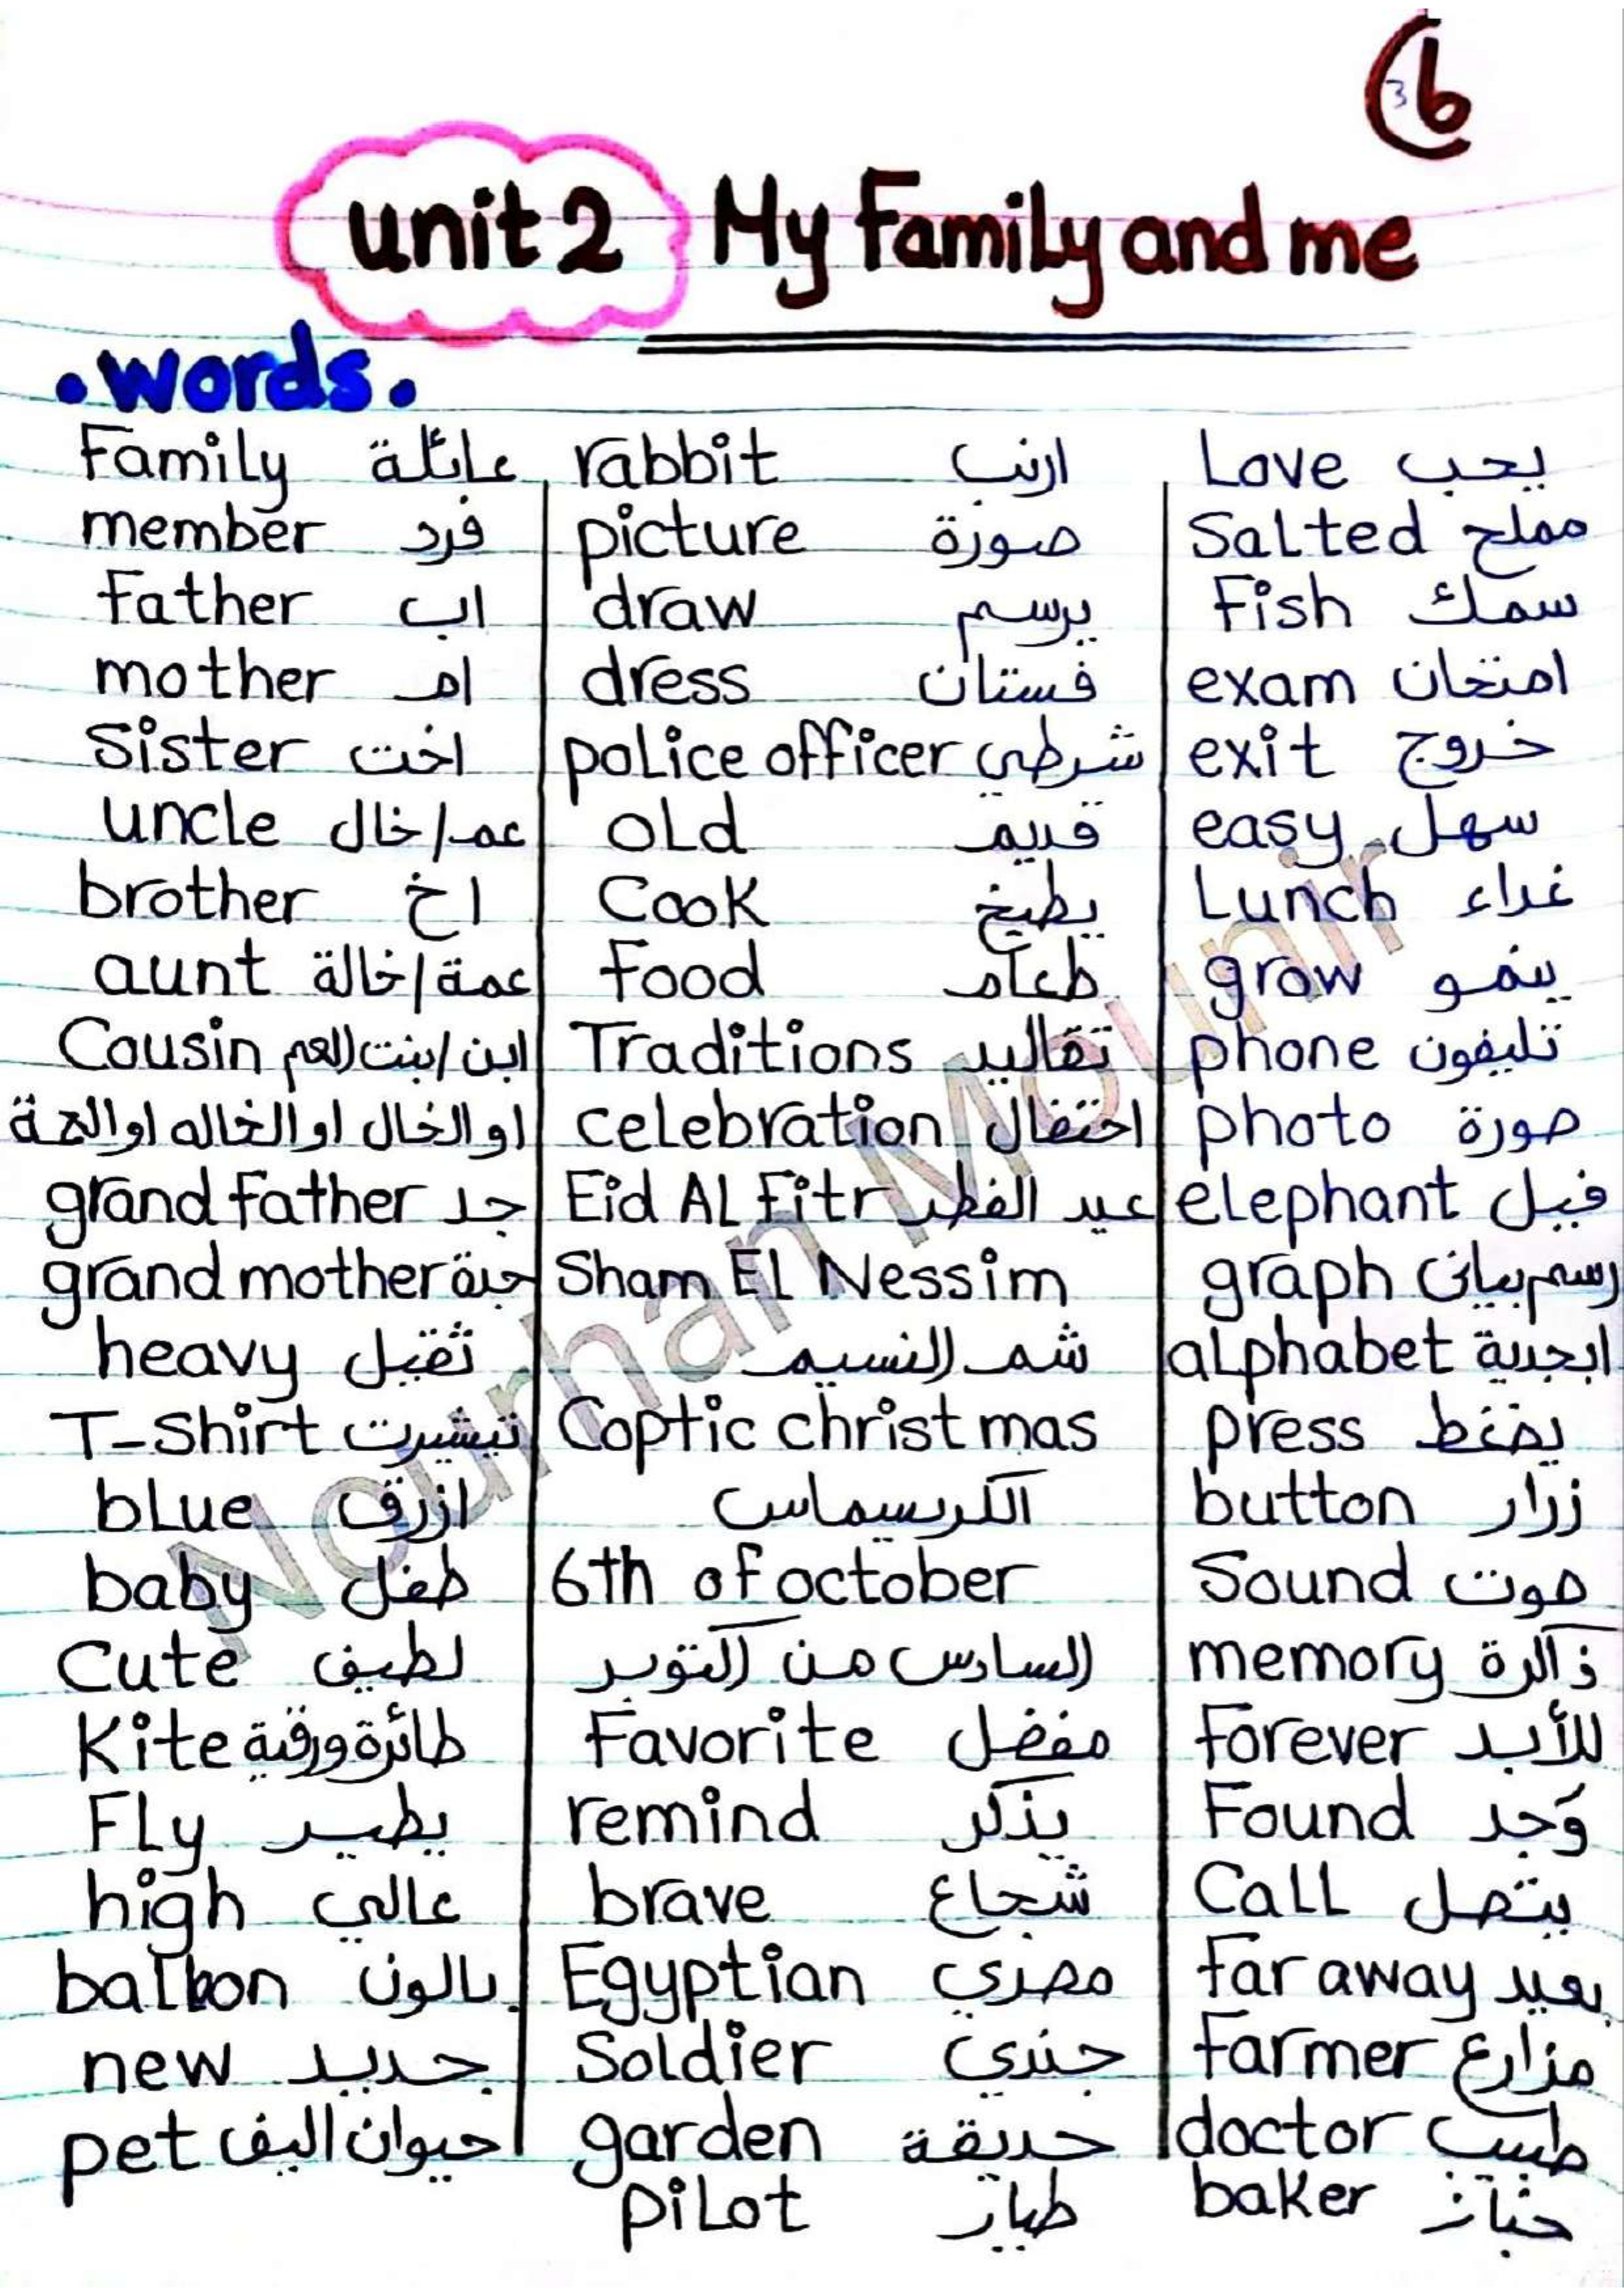 6
3
unit 2 My Family and me
• words •
Family عائلة
member فرد
Father اب
mother ام
Sister اخت
uncle عم/خال
brother اخ
aunt عمة/خالة
Cousin ابن/بنت العم
او الخال او الخاله او العمة
grand father جد
grand mother جدة
heavy ثقيل
T-Shirt تيشيرت
blue ازرق
baby طفل
Cute لطيف
Kite طائرة ورقية
Fly يطير
high عالي
balloon بالون
new جديد
pet حيوان اليف
rabbit ارنب
picture صورة
draw يرسم
dress فستان
police officer شرطي
old قديم
Cook يطبخ
Food طعام
Traditions تقاليد
celebration احتفال
Eid AL Fitr عيد الفطر
Sham EL Nessim
شم النسيم
Coptic christmas
الكريسماس
6th of october
السادس من اكتوبر
Favorite مفضل
remind يذكر
brave شجاع
Egyptian مصري
Soldier جندي
garden حديقة
pilot طيار
Love يحب
Salted مملح
Fish سمك
exam امتحان
exit خروج
easy سهل
Lunch غداء
grow ينمو
phone تليفون
photo صورة
elephant فيل
graph رسم بيانى
alphabet ابجدية
press يضغط
button زرار
Sound صوت
memory ذاكرة
Forever للأبد
Found وَجد
Call يتصل
Far away بعيد
Farmer مزارع
doctor طبيب
baker خباز
Nourhan Mounir